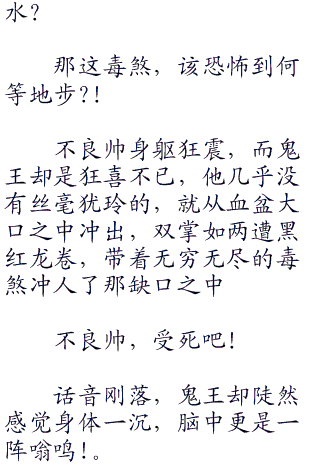 水？
那这毒煞，该恐怖到何
等地步？！
不良帅身躯狂震，而鬼
王却是狂喜不已，他几乎没
有丝毫犹玲的，就从血盆大
口之中冲出，双掌如两遭黑
红龙卷，带着无穷无尽的毒
煞冲人了那缺口之中
不良帅，受死吧！
话音刚落，鬼王却陡然
感觉身体一沉，脑中更是一
阵嗡鸣！。